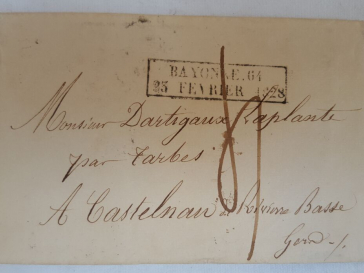 BAYONNE. 64
25 FEVRIER 1828
Monsieur Dartigaux Laplante
par Tarbes
A Castelnau de Riviere Basse
Gers